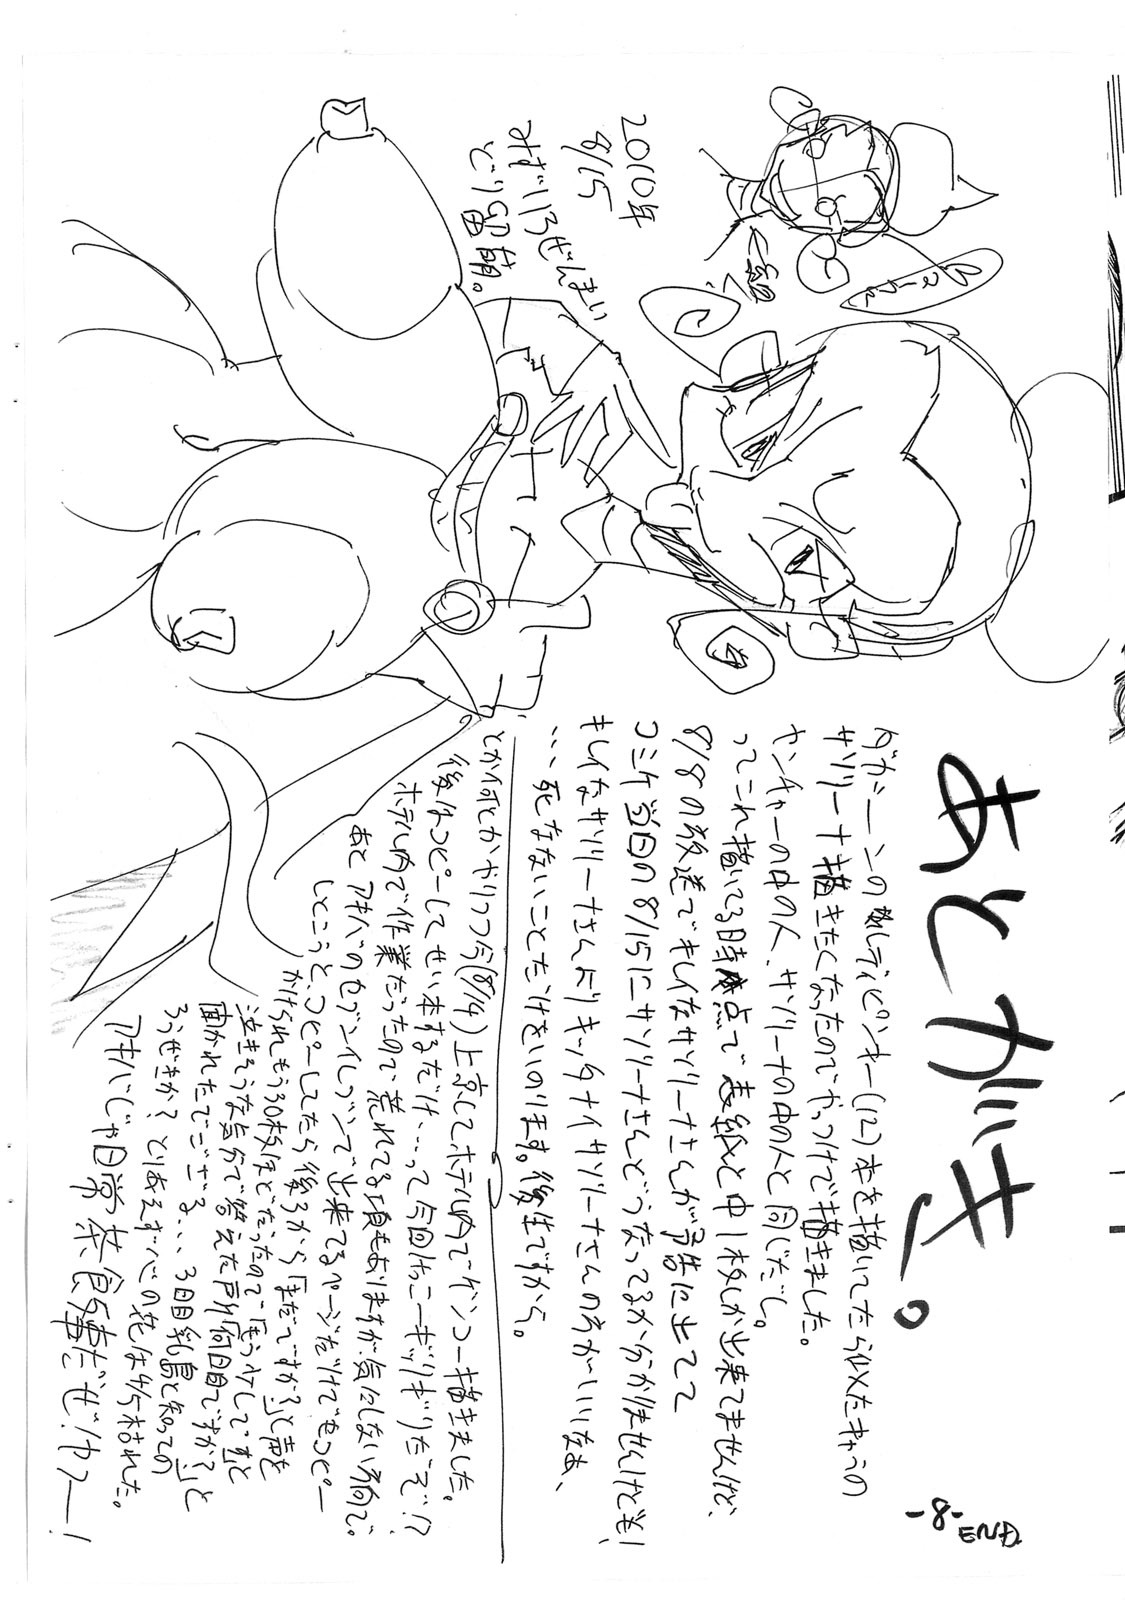 あとがき。
ダカーーンの敵レディピンキー(12)本を描いてたら似たキャラの
サソリーナ描きたくなったのでやっつけで描きました。
ヤンチャーの中の人、サソリーナの中の人と同じだし。
ってこれ描いてる時点で表紙と中1枚しか出来てませんけど、
8/8の放送でキレイなサソリーナさんが予告に出てて
コミケ当日の8/15にサソリーナさんどうなってるか分かりませんけども!
キレイなサソリーナさんよりキッタナイサソリーナさんの方がいいなぁ、
…死なないことだけをいのります。後生ですから。
とか何とかやりつつ今(8/14)上京してホテル内でゲンコー描きました。
後はコピーしてせい本するだけ…って今回けっこーギッリギリだぞ!?
ホテル内で作業だったので荒れてる項もありますが気にしない方向で。
あとアキバのセブンイレブンで出来てるページだけでもコピー
しとこうと、コピーしてたら後ろから「まだですか?」と声を
かけられもう30枚ほどだったので「もう少しです」と
泣きそうな気分で答えた所「何日目ですか?」と
聞かれたでござる、、、3日目乳島と知っての
ろうぜきか?とりあえず心の花は少し枯れた。
アキバじゃ日常茶飯事だぜ!ヤフー!
2010年
8/15
みずいろぜんまい
どり留萌。
-8-
END.